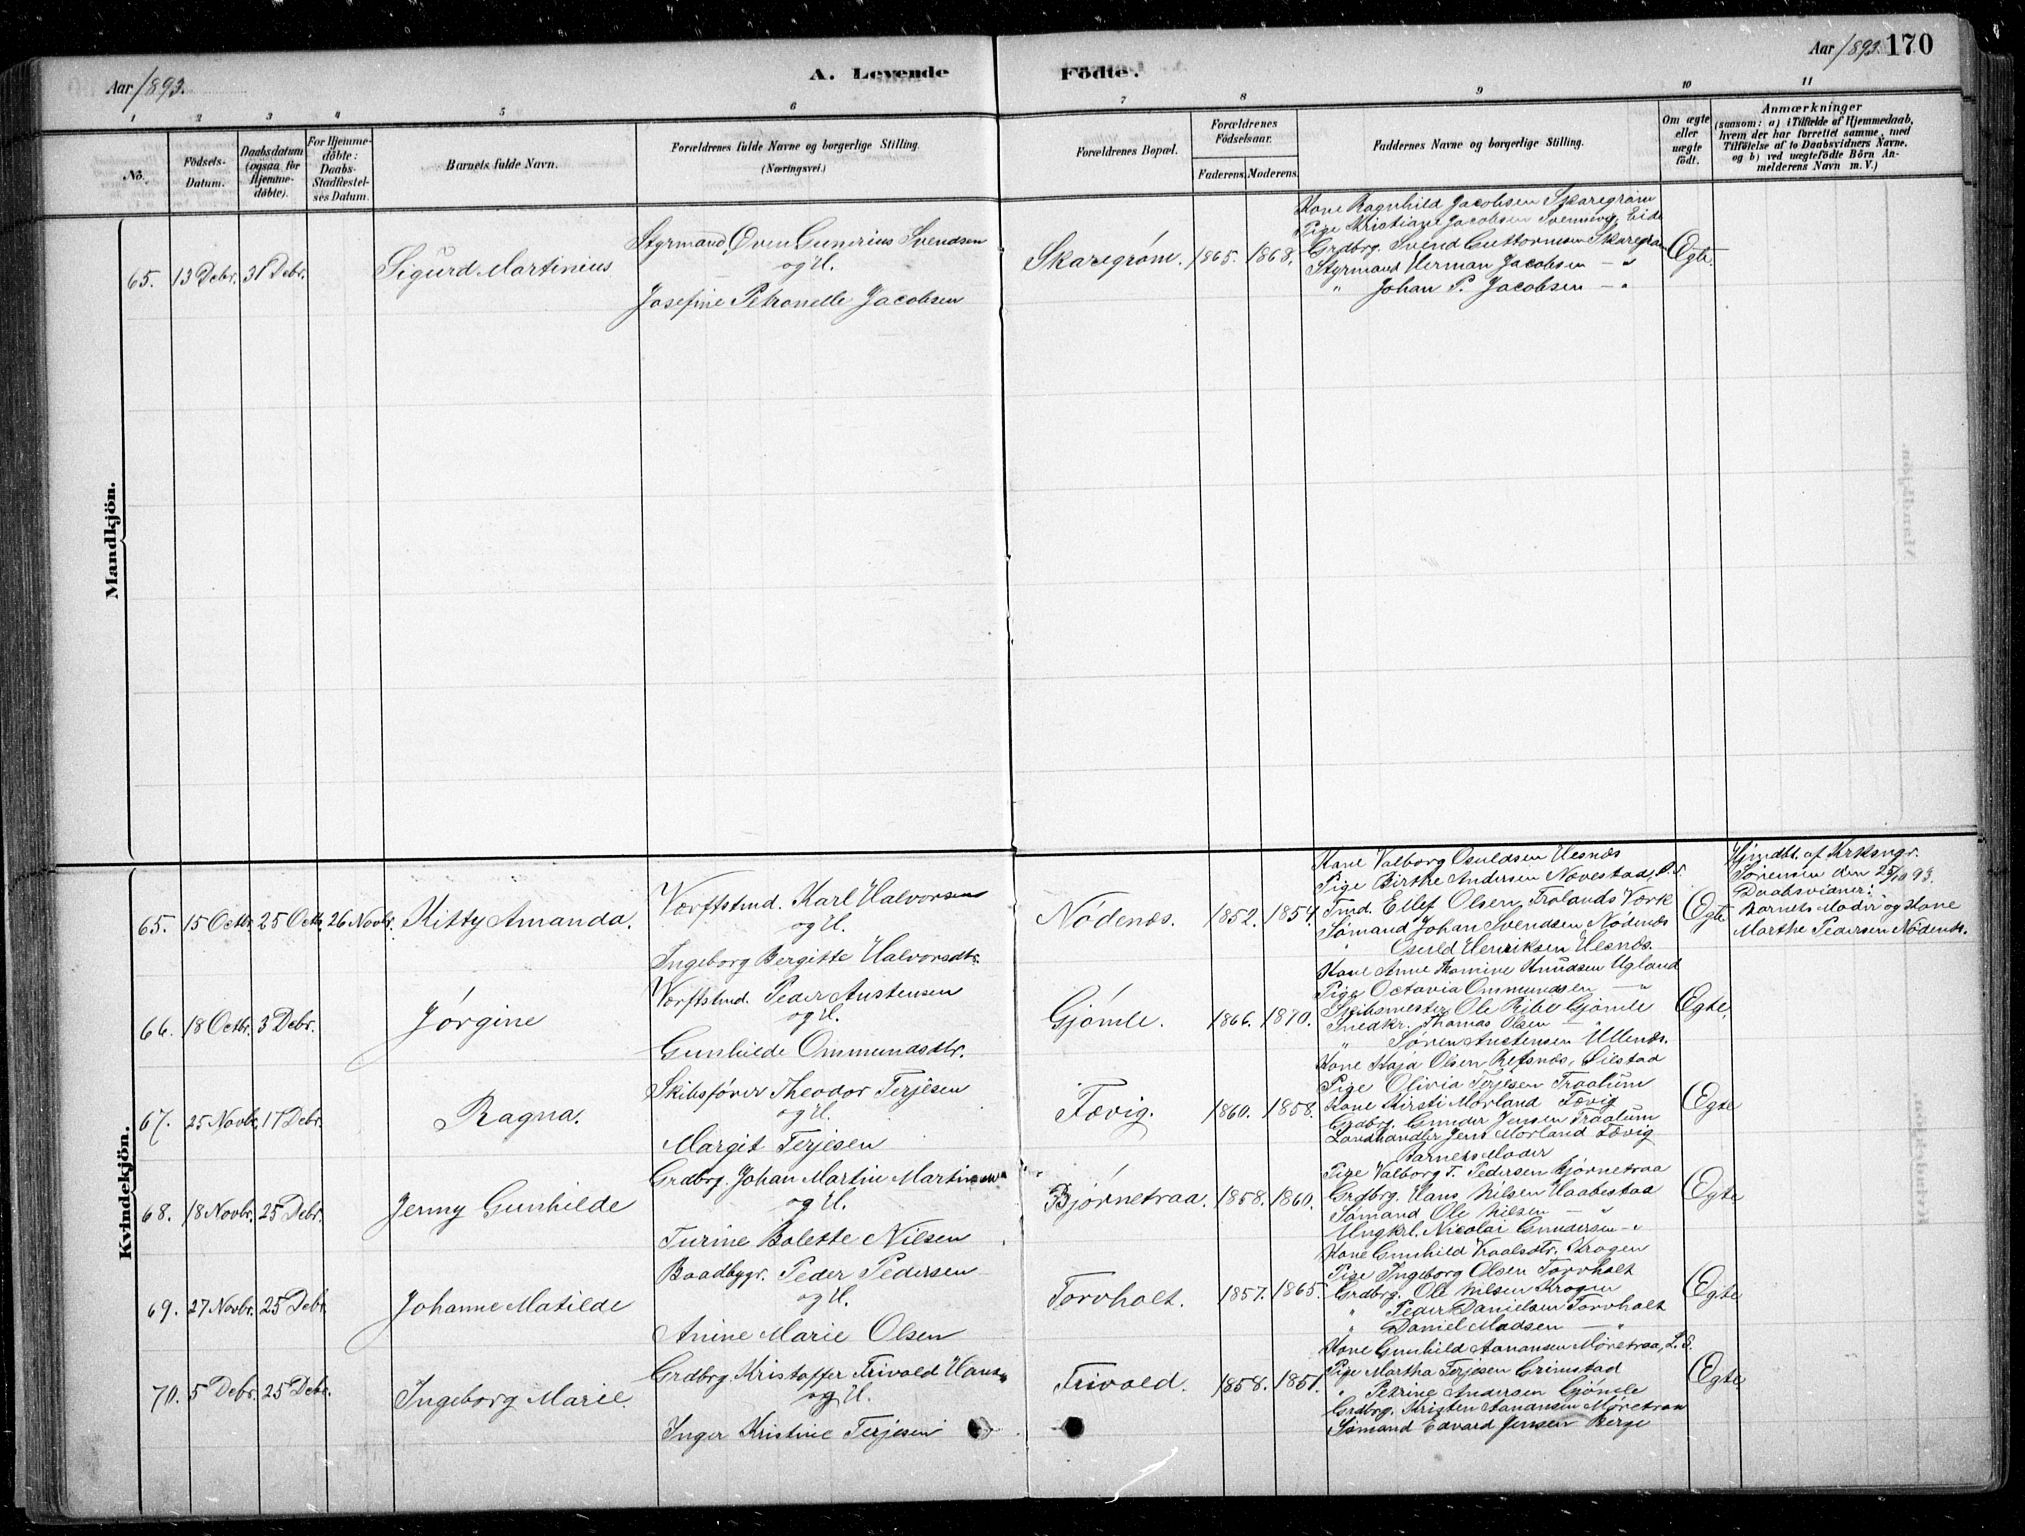 Aar 1893.
A. Levende Födte.
Aar 1893. 170
1 2 3 4 5 6 7 8 9 10 11
No.
Födsels-
Datum.
Daabsdatum
(ogsaa for
Hjemme-
döbte).
For Hjemme-
döbte:
Daabs-
Stadfæstel-
ses Datum.
Barnets fulde Navn.
Forældrenes fulde Navne og borgerlige Stilling.
(Næringsvei.)
Forældrenes Bopæl.
Forældrenes
Födselsaar.
Faderens. Moderens.
Faddernes Navne og borgerlige Stilling.
Om ægte
eller
uægte
født.
Anmærkninger
(saasom: a) i Tilfælde af Hjemmedaab,
hvem der har forrettet samme, med
Tilföielse af to Daabsvidners Navne.
og b) ved uægtefödte Börn An-
melderens Navn m. V.)
Mandkjön.
65. 13 Debr. 31 Debr. Sigurd Martinius
Styrmand Oven Gunerius Svendsen
og H.
Josefine Petronelle Jacobsen
Skaregrøm. 1865. 1868.
Kone Ragnhild Jacobsen Skaregrøm
Pige Kristiane Jacobsen Svennevig, Eide
Grdbrg. Svend Guttormsen Skaregrøm
Styrmand Herman Jacobsen — "
" Johan P. Jacobsen — "
Ægte.
Kvindekjön.
65. 15 Octbr. 25 Octb. 26 Novbr. Kitty Amanda.
Værftstmd. Karl Halvorsen
og H.
Ingeborg Bergitte Halvorsdtr.
Nödenæs. 1852. 1854.
Kone Valborg Osuldsen Hesnæs
Pige Birthe Andersen Nævestad, Ø.S.
Tmd. Ellef Olsen, Frolands Værk
Sømand Johan Svendsen Nødenæs
" Osuld Henriksen Hesnæs.
Ægte
Hjmdbt. af Krksngr.
Sørensen den 25/10 93.
Daabsvidner:
Barnets Moder og Kone
Marthe Pedersen Nödenæs.
66. 18 Octbr. 3 Debr. Jørgine
Værftstmd. Peder Austensen
og H.
Gunhilde Ommundsdtr.
Gjømle. 1866. 1870.
Kone Anne Thomine Knudsen Ugland
Pige Octavia Ommundsen — "
Skibsmester Ole Ribe Gjømle
Snedkr. Thomas Olsen — "
" Søren Austensen Ullenæs.
Ægte.
67. 25 Novbr. 17 Debr. Ragna.
Skibsfører Theodor Terjesen
og H.
Margit Terjesen
Fævig. 1860. 1858.
Kone Kaja Olsen Refsnæs, Lilstad
Pige Olivia Terjesen Traalum
Kone Kirsti Mørland Fævig
Grdbrg. Gunder Jensen Traalum
Landhandler Jens Mørland Fævig
Ægte
68. 18 Novbr. 25 Debr. Jenny Gunhilde
Grdbrg. Johan Martin Martinsen
og H.
Turine Bolette Nilsen
Bjørnetraa. 1858. 1860.
Barnets Moder
Pige Valborg T. Pedersen Bjørnetraa
Grdbrg. Hans Nilsen Haabestad
Sømand Ole Nilsen — "
Ungkrl. Nicolai Gundersen — "
Ægte
69. 27 Novbr. 25 Debr. Johanne Matilde
Baadbygr. Peder Pedersen
og H.
Anine Marie Olsen
Torvholt. 1857. 1865.
Kone Gunhild Kroalsdtr. Krogen
Pige Ingeborg Olsen Torvholt
Grdbrg. Ole Nilsen Krogen
" Peder Danielsen Torvholt
" Daniel Madsen — "
Ægte
70. 5 Debr. 25 Debr. Ingeborg Marie.
Grdbrg. Kristoffer Trivold Hans.
og H.
Inger Kristine Terjesen
Trivold. 1858. 1851.
Kone Gunhild Aanansen Møretraa, L.E.
Pige Martha Terjesen Grimstad
" Petrine Andersen Gjømle
Grdbrg. Kristen Aanansen Møretraa
Sømand Edvard Jensen Berge
Ægte